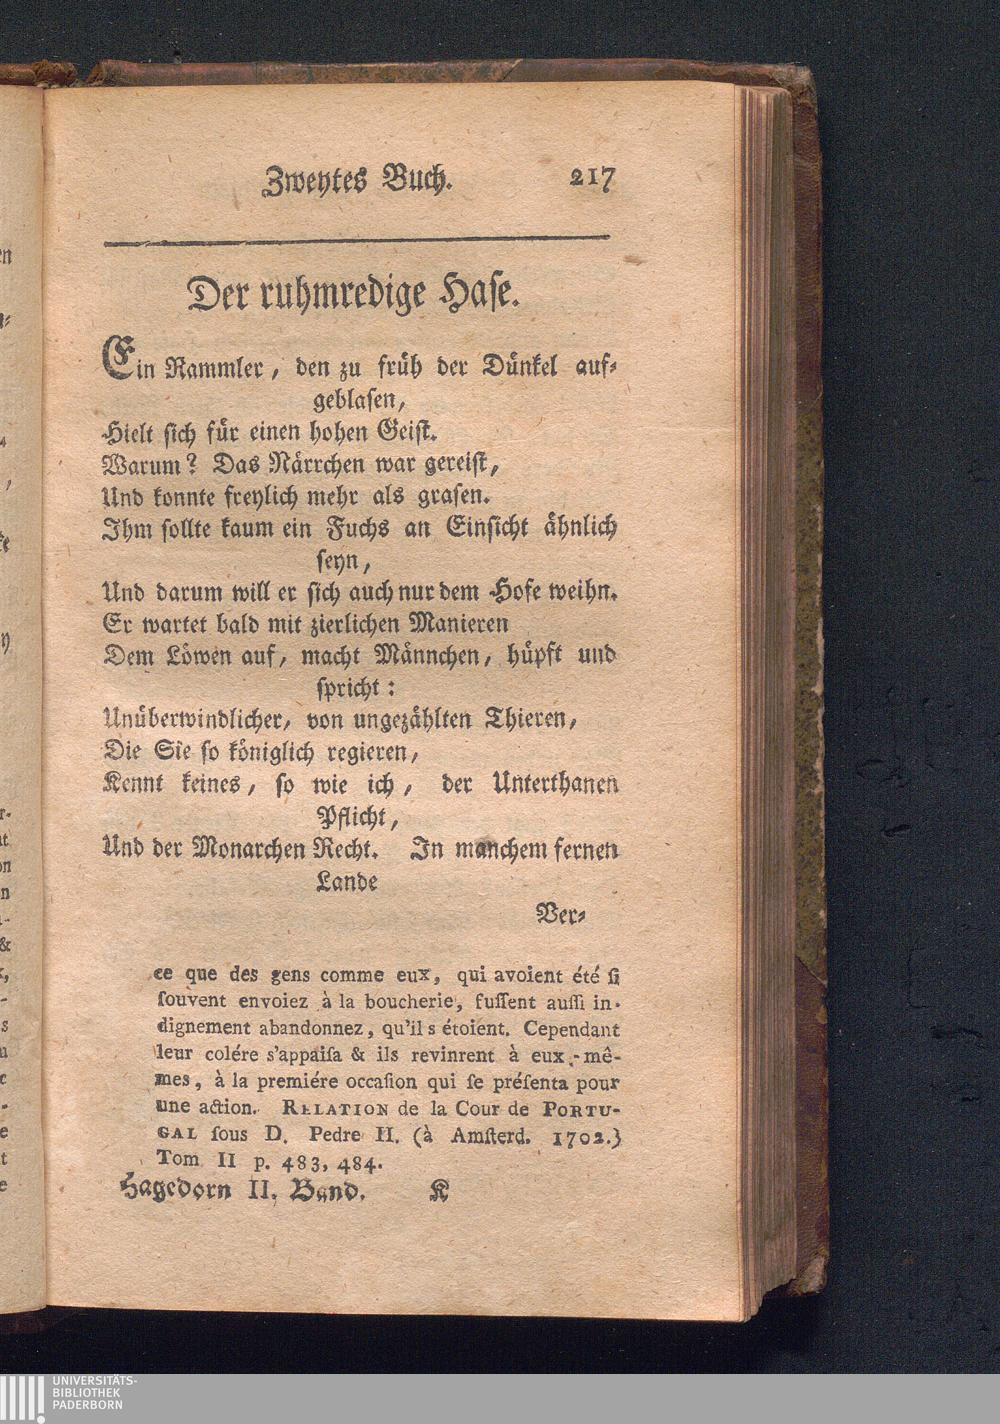 Zweytes Buch. 217
Der ruhmredige Hase.
Ein Rammler, den zu früh der Dünkel auf-
geblasen,
Hielt sich für einen hohen Geist.
Warum? Das Närrchen war gereist,
Und konnte freylich mehr als grasen.
Ihm sollte kaum ein Fuchs an Einsicht ähnlich
seyn,
Und darum will er sich auch nur dem Hofe weihn.
Er wartet bald mit zierlichen Manieren
Dem Löwen auf, macht Männchen, hüpft und
spricht:
Unüberwindlicher, von ungezählten Thieren,
Die Sie so königlich regieren,
Kennt keines, so wie ich, der Unterthanen
Pflicht,
Und der Monarchen Recht. In manchem fernen
Lande
Ver-
ce que des gens comme eux, qui avoient été ſi
ſouvent envoiez à la boucherie, fuſſent auſſi in-
dignement abandonnez, qu'il s étoient. Cependant
leur colére s'appaiſa & ils revinrent à eux-mê-
mes, à la premiére occaſion qui ſe préſenta pour
une action. RELATION de la Cour de PORTU-
GAL ſous D. Pedre II. (à Amſterd. 1702.)
Tom II p. 483, 484.
Hagedorn II. Band. K
UNIVERSITÄTS-
BIBLIOTHEK
PADERBORN